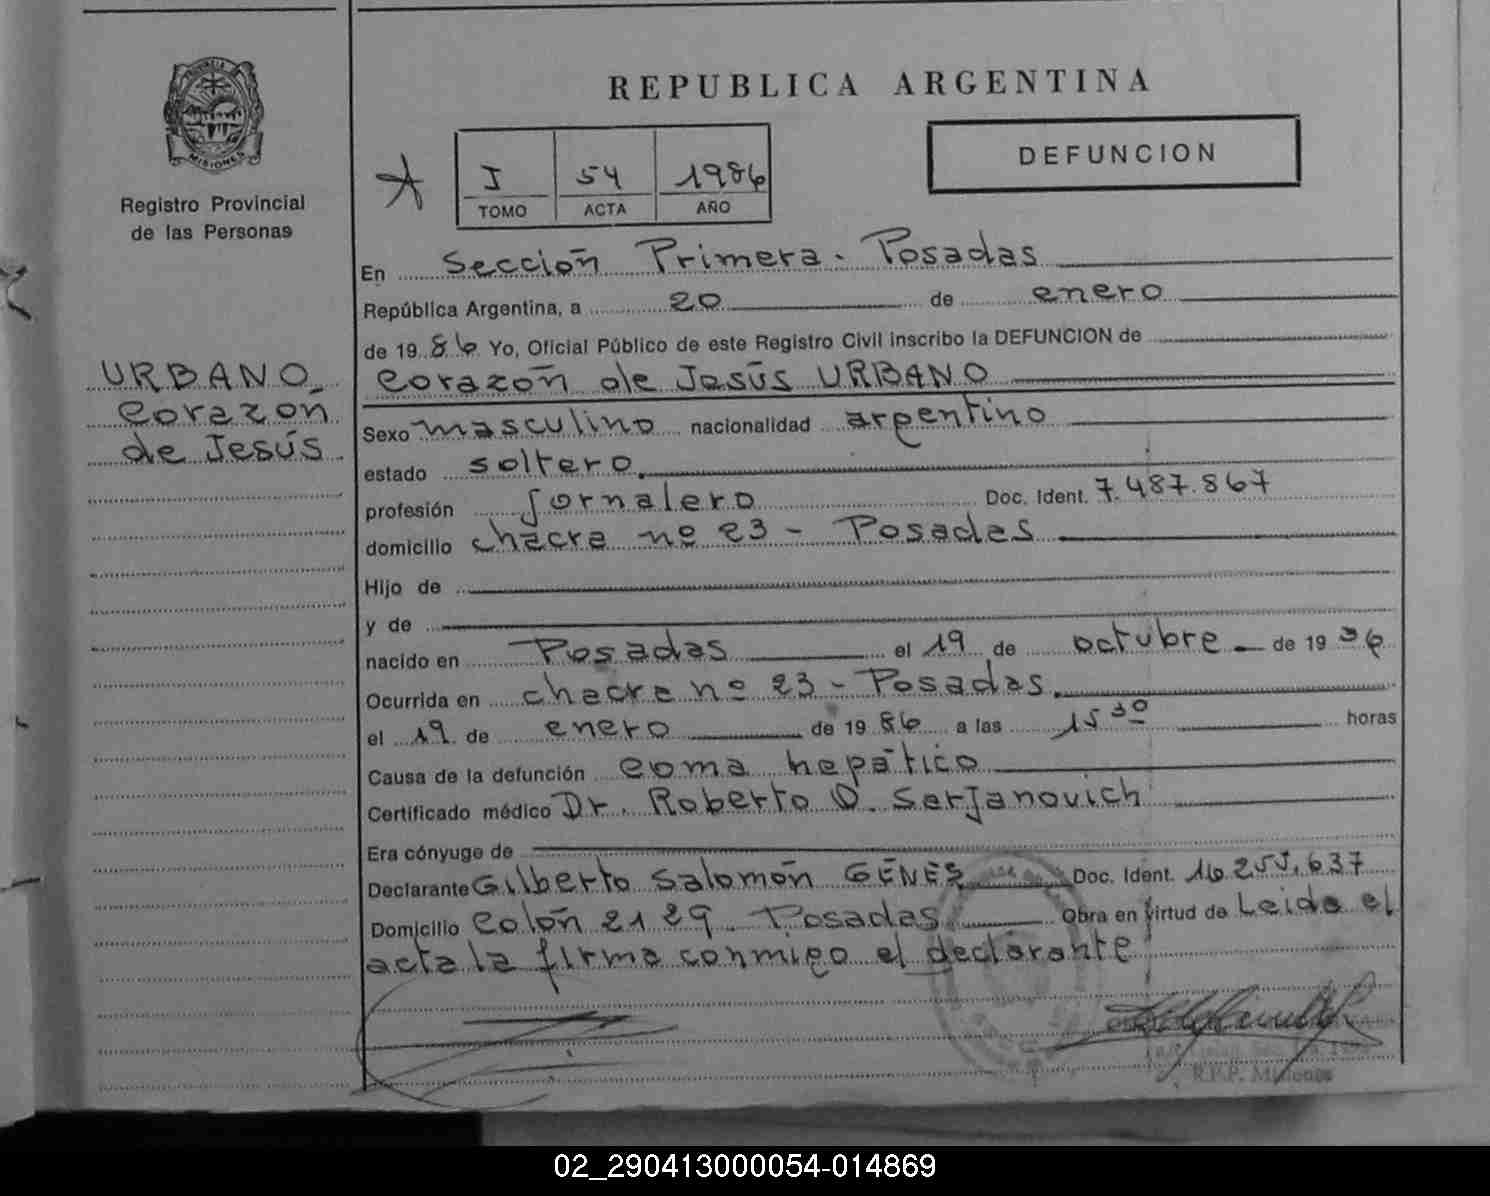 PROVINCIA DE
MISIONES
Registro Provincial
de las Personas
URBANO
Corazón
de Jesús
REPUBLICA ARGENTINA
DEFUNCION
I 54 1986
TOMO ACTA AÑO
En Sección Primera. Posadas
República Argentina, a 20 de enero
de 1986 Yo, Oficial Público de este Registro Civil inscribo la DEFUNCION de
Corazón de Jesús URBANO
Sexo masculino nacionalidad argentino
estado soltero
profesión jornalero Doc. Ident. 7.487.867
domicilio chacra nº 23 - Posadas
Hijo de
y de
nacido en Posadas el 19 de octubre de 1936
Ocurrida en chacra nº 23 - Posadas.
el 19 de enero de 1986 a las 15 30 horas
Causa de la defunción coma hepático
Certificado médico Dr. Roberto O. SerJanovich
Era cónyuge de
Declarante Gilberto Salomón GENES Doc. Ident. 16.255.637
Domicilio Colón 2129. Posadas Obra en virtud de Leida el
acta la firma conmigo el declarante
R.P.P. Misiones
02_290413000054-014869